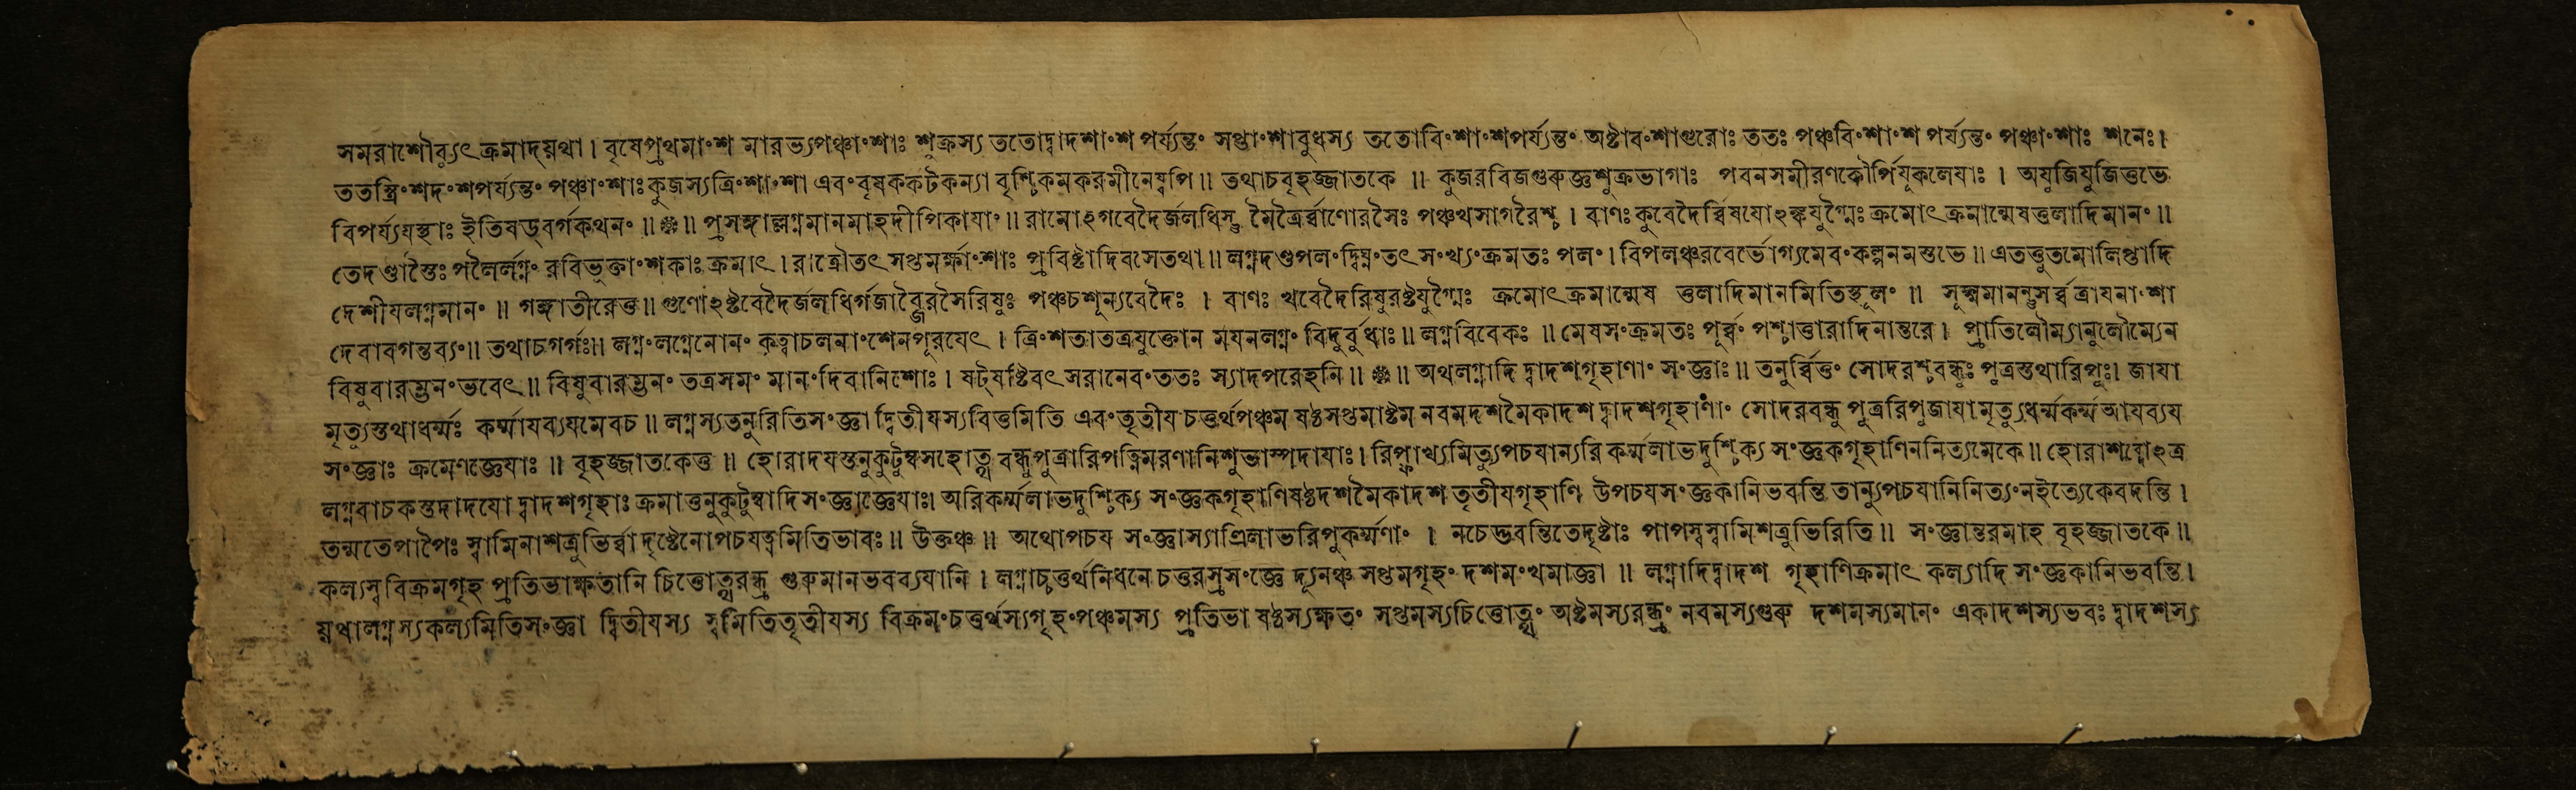 সমরাশৌব্যুৎক্রমাদ্যথা। বৃষেপ্রথমাংশ মারভ্যপঞ্চাংশাঃ শুক্রস্য ততোদ্বাদশাংশ পর্য্যন্তং সপ্তাংশাবুধস্য ততোবিংশাংশপর্য্যন্তং অষ্টাবংশাগুরোঃ ততঃ পঞ্চবিংশাংশ পর্য্যন্তং পঞ্চাংশাঃ শনেঃ।
ততস্ত্রিংশদংশপর্য্যন্তং পঞ্চাংশাঃ কুজস্যত্রিংশাংশা এবং বৃষকর্কটকন্যা বৃশ্চিকমকরমীনেষ্বপি॥ তথাচবৃহজ্জাতকে ॥ কুজরবিজগুরুজ্ঞশুক্রভাগাঃ পবনসমীরণকৌর্পিযূকলেযাঃ। অযুজিযুজিত্তভে
বিপর্য্যযস্থাঃ ইতিষড়্বর্গকথনং ॥ ॥ প্রসঙ্গাল্লগ্নমানমাহদীপিকাযাং॥ রামোঽগবেদৈর্জলধিস্তু মৈত্রৈর্ব্বাণোরসৈঃ পঞ্চখসাগরৈশ্চ। বাণঃ কুবেদৈর্ব্বিষযোঽঙ্কযুগ্মৈঃ ক্রমোৎক্রমান্মেষত্তলাদিমানং॥
তেদণ্ডাস্তৈঃ পলৈর্লগ্নং রবিভুক্তাংশকাঃ ক্রমাৎ। রাত্রৌতৎ সপ্তমর্ক্ষাংশাঃ প্রবিষ্টাদিবসেতথা॥ লগ্নদণ্ডপলংদ্বিঘ্নংতৎ সংখ্যংক্রমতঃ পলং। বিপলঞ্চরবের্ভোগ্যমেবংকল্পনমস্তভে॥ এতত্তুতমোলিপ্তাদি
দেশীযলগ্নমানং ॥ গঙ্গাতীরেত্ত॥ গুণোঽষ্টবেদৈর্জলধির্গজাব্ধৈরসৈরিষুঃ পঞ্চচশূন্যবেদৈঃ। বাণঃ খবেদৈরিষুরষ্টযুগ্মৈঃ ক্রমোৎক্রমান্মেষ ত্তলাদিমানমিতিস্থূলং ॥ সূক্ষ্মমানন্তুসর্ব্বত্রাযনাংশা
দেবাবগন্তব্যং॥ তথাচগর্গঃ॥ লগ্নংলগ্নেনোনং কৃত্বাচলনাংশেনপূরযেৎ। ত্রিংশতাতত্রযুক্তোন মযনলগ্নং বিদুবুর্ধাঃ॥ লগ্নবিবেকঃ ॥ মেষসংক্রমতঃ পূর্ব্বং পশ্চাত্তারাদিনান্তরে। প্রাতিলৌম্যানুলৌম্যেন
বিষুবারম্ভনংভবেৎ॥ বিষুবারম্ভনং তত্রসমং মানংদিবানিশোঃ। ষট্ষষ্টিবৎ সরানেবংততঃ স্যাদপরেহনি॥ ॥ অথলগ্নাদি দ্বাদশগৃহাণাং সংজ্ঞাঃ॥ তনুর্ব্বিত্তং সোদরশ্চবন্ধুঃ পুত্রস্তথারিপুঃ। জাযা
মৃত্যুস্তথাধর্ম্মঃ কর্ম্মাযব্যযমেবচ॥ লগ্নস্যতনুরিতিসংজ্ঞা দ্বিতীযস্যবিত্তমিতি এবংতৃতীয চত্তুর্থপঞ্চম ষষ্ঠসপ্তমাষ্টম নবমদশমৈকাদশ দ্বাদশগৃহাণাং সোদরবন্ধু পুত্ররিপুজাযামৃত্যুধর্ম্মকর্ম্মআযব্যয
সংজ্ঞাঃ ক্রমেণজ্ঞেযাঃ॥ বৃহজ্জাতকেত্ত॥ হোরাদযস্তনুকুটুম্বসহোত্থ বন্ধুপুত্রারিপত্নিমরণানিশুভাস্পদাযাঃ। রিপ্ফাখ্যমিত্যুপচযান্যরি কর্ম্মলাভদুশ্চিক্য সংজ্ঞকগৃহাণিননিত্যমেকে॥ হোরাশব্দোঽত্র
লগ্নবাচকস্তদাদযো দ্বাদশগৃহাঃ ক্রমাত্তনুকুটুম্বাদিসংজ্ঞাজ্ঞেযাঃ। অরিকর্ম্মলাভদুশ্চিক্য সংজ্ঞকগৃহাণিষষ্ঠদশমৈকাদশ তৃতীযগৃহাণি উপচযসংজ্ঞকানিভবন্তি তান্যুপচযানিনিত্যংনইত্যেকেবদন্তি।
তন্মতেপাপৈঃ স্বামিনাশত্রুভির্ব্বাদৃষ্টেনোপচযত্বমিতিভাবঃ॥ উক্তঞ্চ॥ অথোপচয সংজ্ঞাস্যাত্রিলাভরিপুকর্ম্মণাং। নচেদ্ভবন্তিতেদৃষ্টাঃ পাপস্বস্বামিশত্রুভিরিতি॥ সংজ্ঞান্তরমাহ বৃহজ্জাতকে॥
কল্যস্ববিক্রমগৃহ প্রতিভাক্ষতানি চিত্তোত্থরন্ধ্র গুরুমানভবব্যযানি। লগ্নাচ্চত্তুর্থনিধনে চত্তুরস্রসংজ্ঞে দ্যূনঞ্চ সপ্তমগৃহং দশমংখমাজ্ঞা॥ লগ্নাদিদ্বাদশ গৃহাণিক্রমাৎ কল্যাদি সংজ্ঞকানিভবন্তি।
যথালগ্নস্যকল্যমিতিসংজ্ঞা দ্বিতীযস্য স্বমিতিতৃতীযস্য বিক্রমংচত্তুর্থস্যগৃহংপঞ্চমস্য প্রতিভা ষষ্ঠস্যক্ষতং সপ্তমস্যচিত্তোত্থং অষ্টমস্যরন্ধ্রং নবমস্যগুরু দশমস্যমানং একাদশস্যভবঃ দ্বাদশস্য